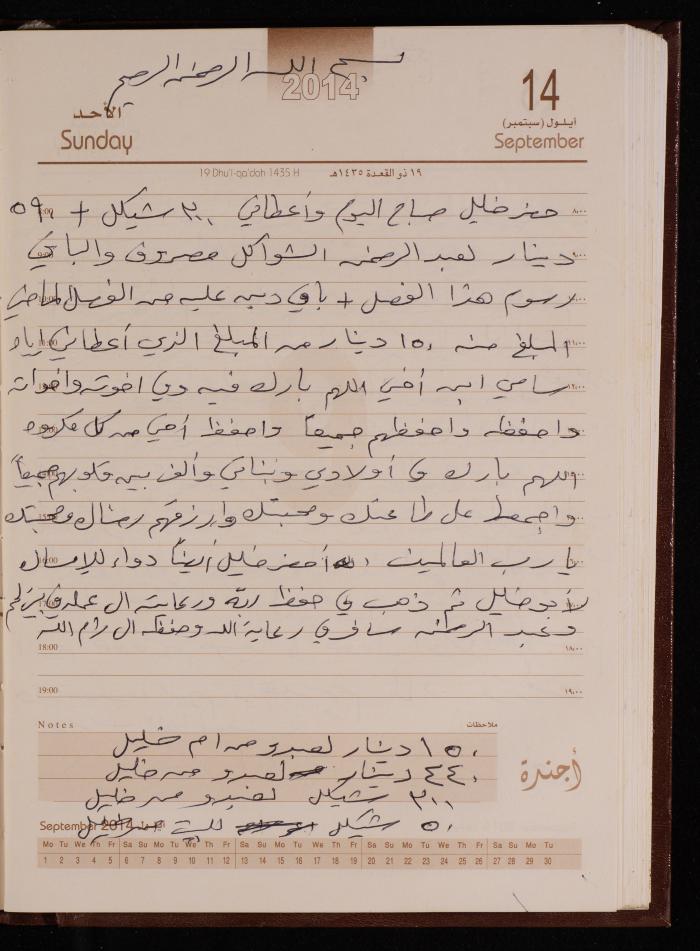 بسم الله الرحمن الرحيم
2014
14
الأحد
أيلول (سبتمبر)
Sunday
September
19 Dhu'l-qa'dah 1435 H
١٩ ذو القعدة ١٤٣٥هـ
حضر خليل صباح اليوم وأعطاني ٣٠٠ شيكل + ٥٩٠
دينار لعبد الرحمن الشواكل مصروف والباقي
رسوم هذا الفصل + باقي دين عليه من الفصل الماضي
المبلغ منه ١٥٠ دينار من المبلغ الذي أعطاني إياه
سامي ابن أخي اللهم بارك فيه وفي اخوته واخواته
واحفظه واحفظهم جميعاً واحفظ أخي من كل مكروه
اللهم بارك في أولادي وبناتي وألف بين قلوبهم جميعاً
على طاعتك ومحبتك وارزقهم رضاك ومحبتك
يا رب العالمين أحضر خليل أيضاً دواء للإمساك
لأبو خليل ثم ذهب في حفظ الله ورعايته الى عمله في
وعبد الرحمن سافر في رعاية الله وحفظه الى رام الله
18:00
١٨،٠٠
19:00
١٩،٠٠
Notes
ملاحظات
١٥٠ دينار لعبدو من ام خليل
٤٤٠ دينار لعبدو من خليل
٣٠٠ شيكل لعبدو من خليل
٥٠ شيكل للبيت
أجندة
September 2014
Mo Tu We Th Fr Sa Su Mo Tu We Th Fr Sa Su Mo Tu We Th Fr Sa Su Mo Tu We Th Fr Sa Su Mo Tu
1 2 3 4 5 6 7 8 9 10 11 12 13 14 15 16 17 18 19 20 21 22 23 24 25 26 27 28 29 30